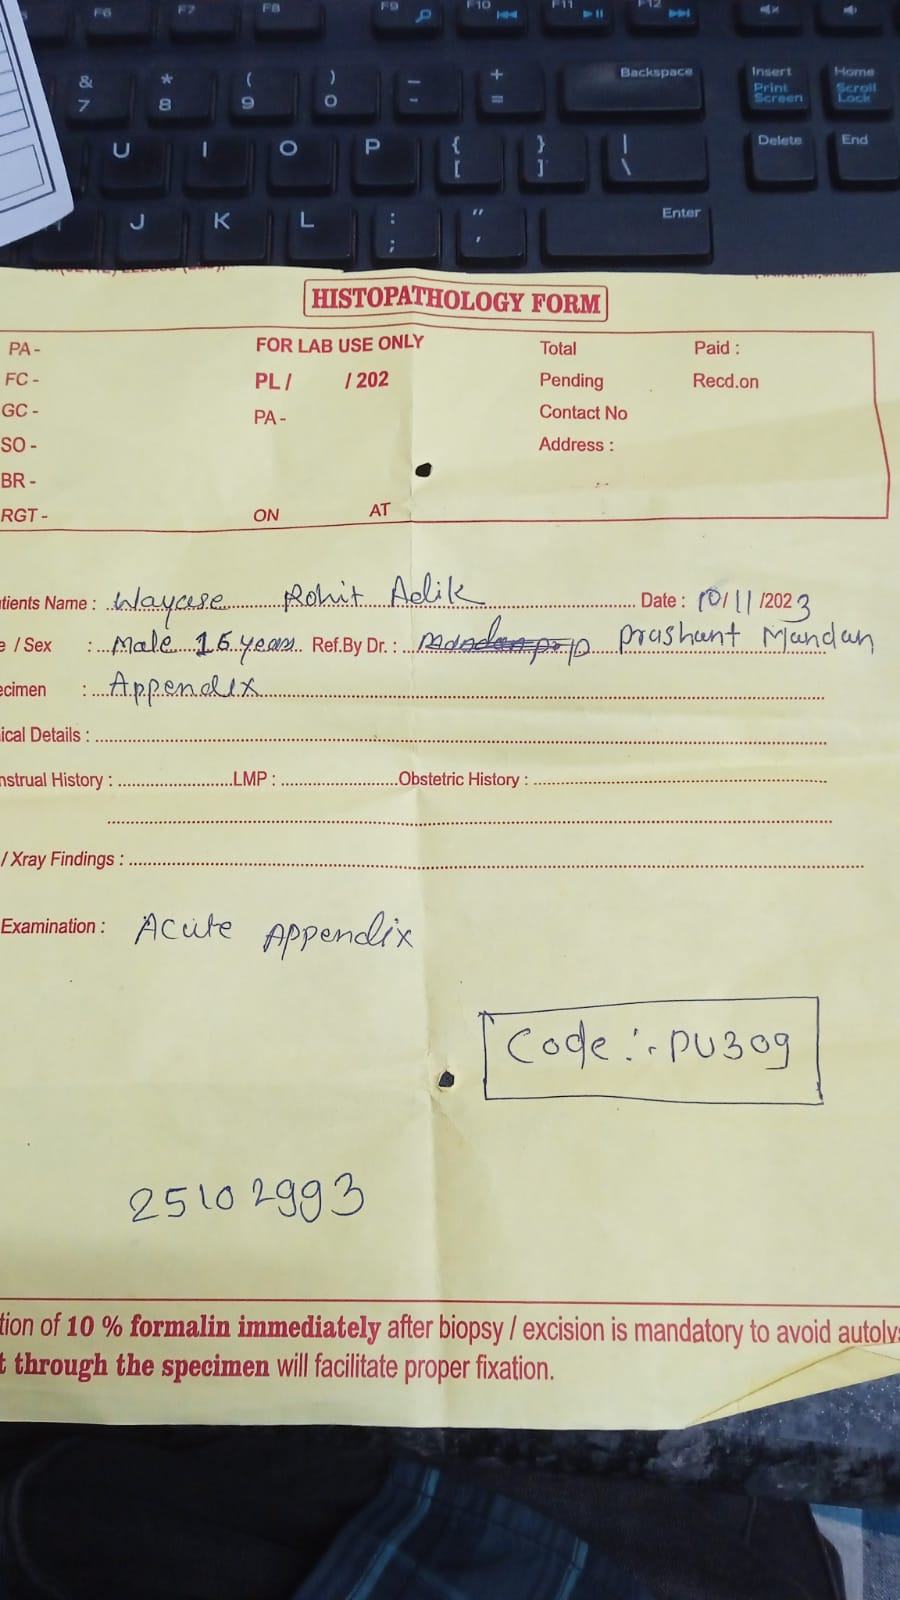 F6 F7 F8 F9 F10 F11 F12
& * ( ) _ + Backspace Insert Home
7 8 9 0 - = Print Screen Scroll Lock
U I O P { } | Delete End
[ ] \
J K L : " Enter
; '
HISTOPATHOLOGY FORM
PA - FOR LAB USE ONLY Total Paid :
FC - PL / / 202 Pending Recd.on
GC - PA - Contact No
SO - Address :
BR -
RGT - ON AT
tients Name : Wayase Rohit Adik Date : 10/11/2023
e / Sex : Male 16 years Ref.By Dr. : Prashant Mandan
ecimen : Appendix
ical Details :
nstrual History : LMP : Obstetric History :
/ Xray Findings :
Examination : Acute Appendix
Code :- PU309
25102993
tion of 10 % formalin immediately after biopsy / excision is mandatory to avoid autolys
t through the specimen will facilitate proper fixation.